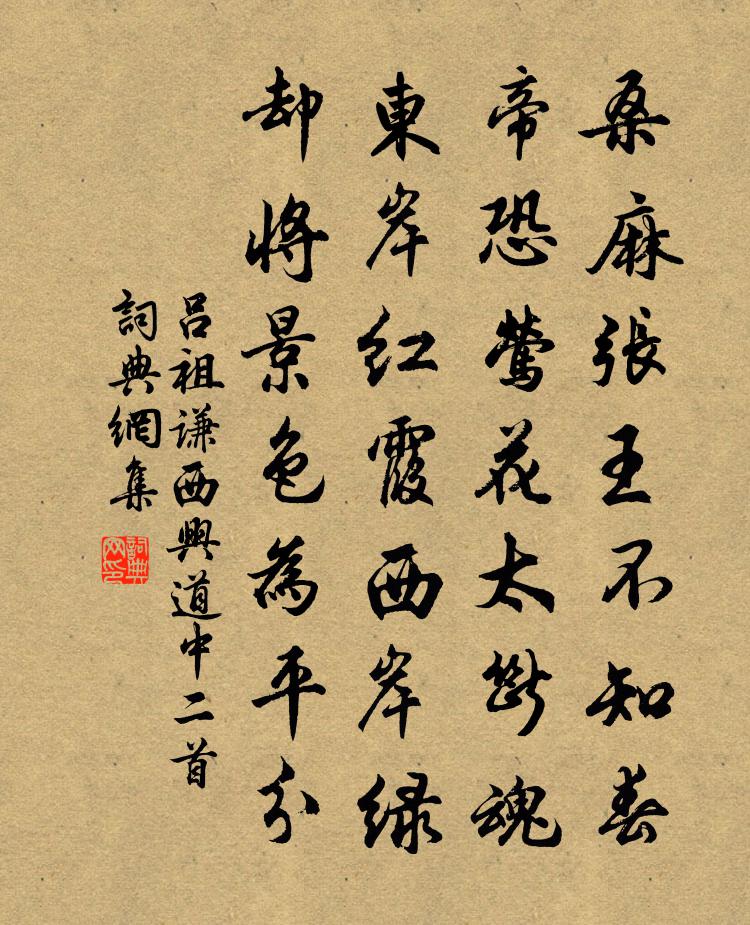 桑麻張王不知春
帝恐鶯花太斷魂
東岸紅霞西岸緑
却將景色為平分
吕祖谦西興道中二首
詞典網集
詞典
网印